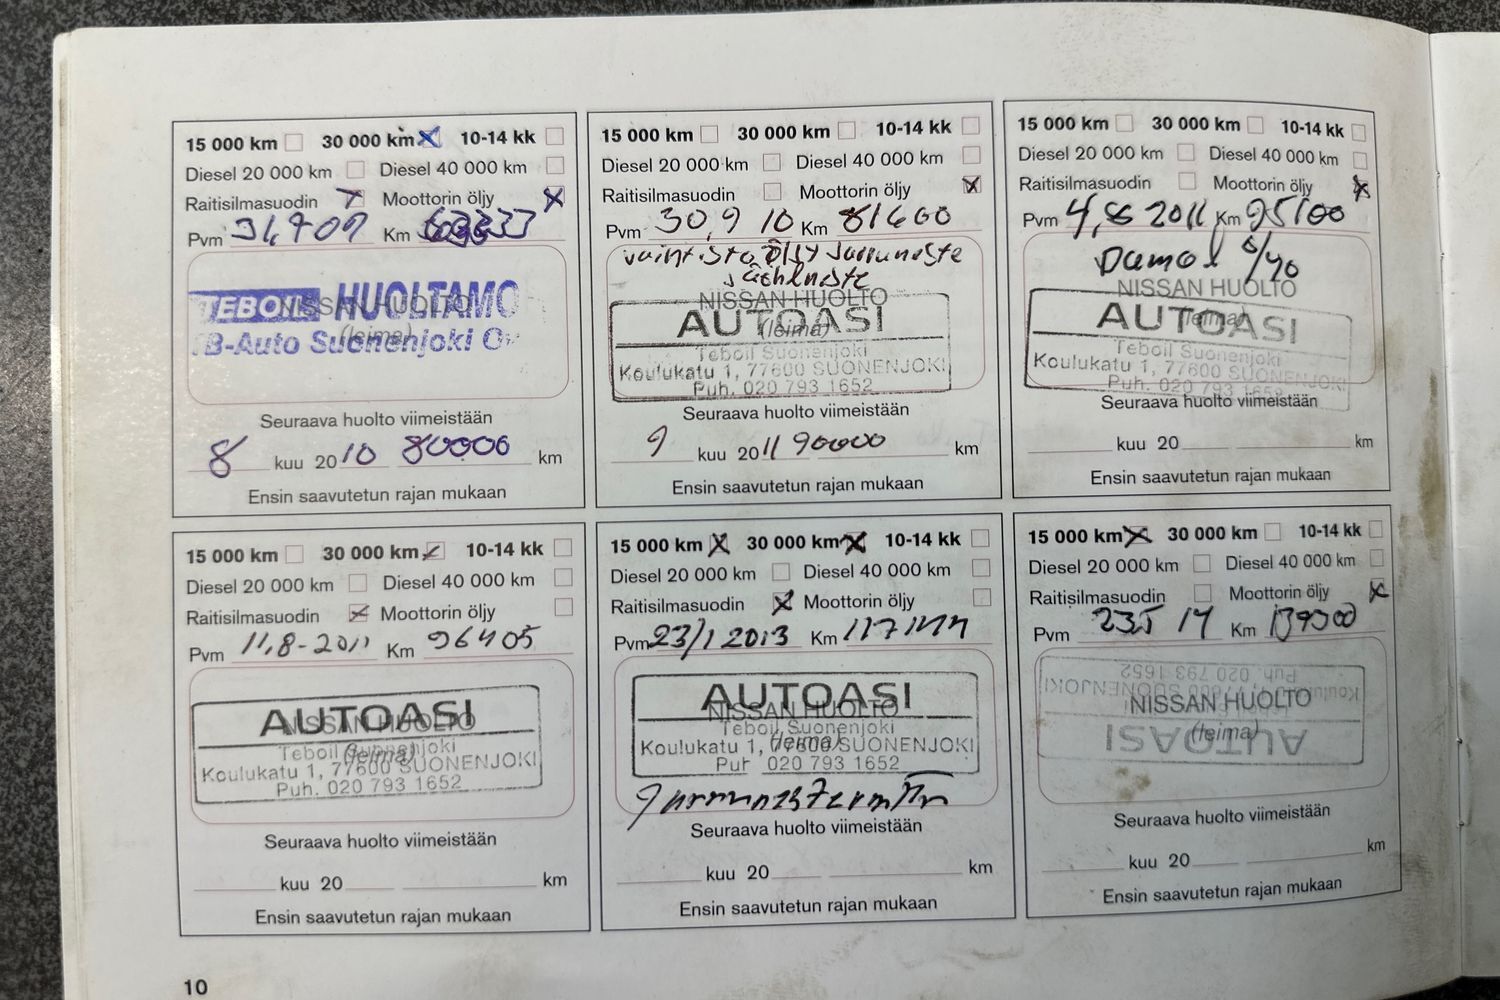 15 000 km 30 000 km 10-14 kk
Diesel 20 000 km Diesel 40 000 km
Raitisilmasuodin Moottorin öljy
Pvm 31,7 09 Km
NISSAN HUOLTO
(leima)
TEBOIL HUOLTAMO
TB-Auto Suonenjoki Oy
Seuraava huolto viimeistään
8 kuu 20 10 80000 km
Ensin saavutetun rajan mukaan
15 000 km 30 000 km 10-14 kk
Diesel 20 000 km Diesel 40 000 km
Raitisilmasuodin Moottorin öljy
Pvm 30,9 10 Km 81600
öljy
NISSAN HUOLTO
(leima)
AUTOASI
Teboil Suonenjoki
Koulukatu 1, 77600 SUONENJOKI
Puh. 020 793 1652
Seuraava huolto viimeistään
9 kuu 20 11 90000 km
Ensin saavutetun rajan mukaan
15 000 km 30 000 km 10-14 kk
Diesel 20 000 km Diesel 40 000 km
Raitisilmasuodin Moottorin öljy
Pvm 4,8 2011 Km 95100
NISSAN HUOLTO
(leima)
AUTOASI
Teboil Suonenjoki
Koulukatu 1, 77600 SUONENJOKI
Puh. 020 793 1652
Seuraava huolto viimeistään
kuu 20 km
Ensin saavutetun rajan mukaan
15 000 km 30 000 km 10-14 kk
Diesel 20 000 km Diesel 40 000 km
Raitisilmasuodin Moottorin öljy
Pvm 11,8-2011 Km 96405
NISSAN HUOLTO
(leima)
AUTOASI
Teboil Suonenjoki
Koulukatu 1, 77600 SUONENJOKI
Puh. 020 793 1652
Seuraava huolto viimeistään
kuu 20 km
Ensin saavutetun rajan mukaan
15 000 km 30 000 km 10-14 kk
Diesel 20 000 km Diesel 40 000 km
Raitisilmasuodin Moottorin öljy
Pvm 23/1 2013 Km
NISSAN HUOLTO
(leima)
AUTOASI
Teboil Suonenjoki
Koulukatu 1, 77600 SUONENJOKI
Puh 020 793 1652
Seuraava huolto viimeistään
kuu 20 km
Ensin saavutetun rajan mukaan
15 000 km 30 000 km 10-14 kk
Diesel 20 000 km Diesel 40 000 km
Raitisilmasuodin Moottorin öljy
Pvm 235 14 Km
NISSAN HUOLTO
(leima)
AUTOASI
Koulukatu 1, 77600 SUONENJOKI
Puh. 020 793 1652
Seuraava huolto viimeistään
kuu 20 km
Ensin saavutetun rajan mukaan
10